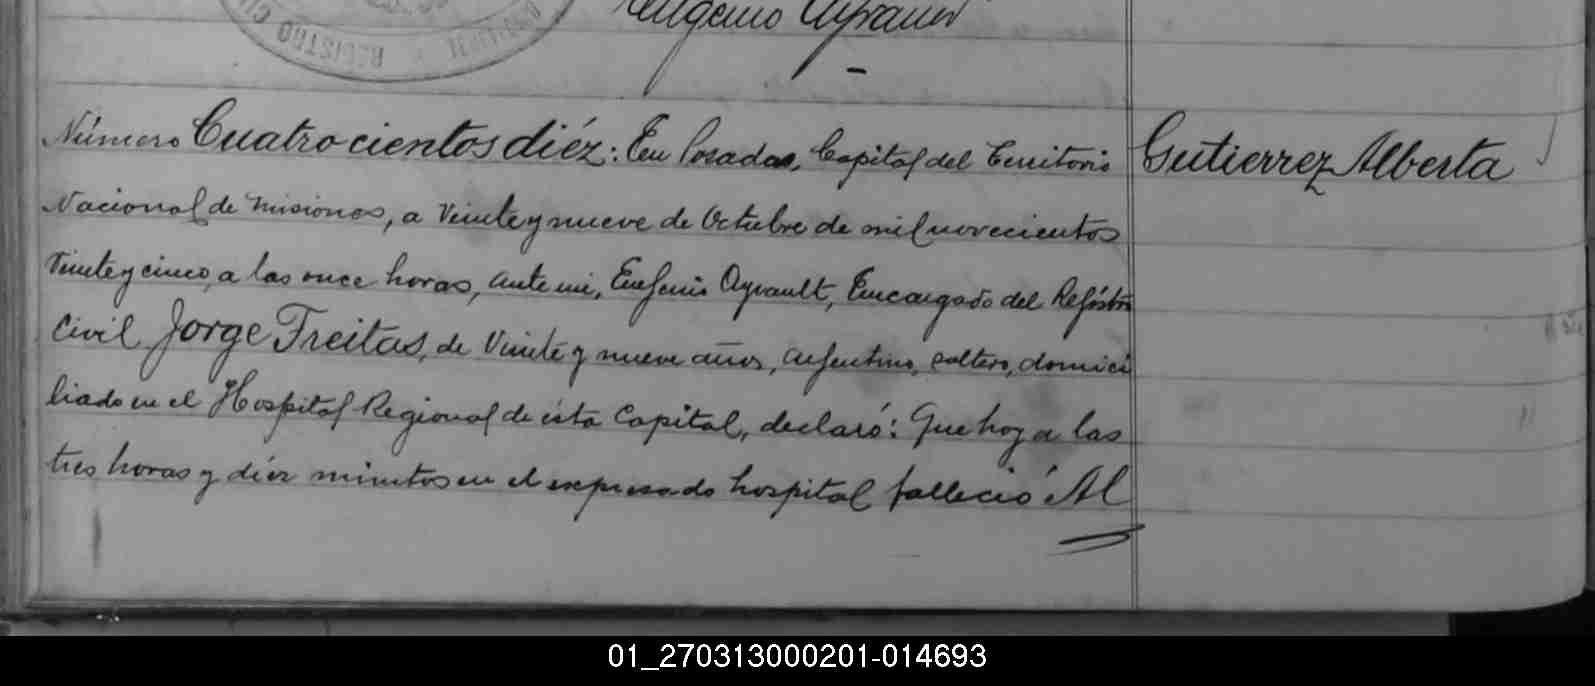 Eugenio Ayrault
REGISTRO
Número Cuatrocientos diéz: En Posadas, Capital del Territorio
Gutierrez Alberta
Nacional de Misiones, a Veinte y nueve de Octubre de mil novecientos
Veinte y cinco, a las once horas, ante mi, Eugenio Ayrault, Encargado del Registro
Civil Jorge Freitas, de Veinte y nueve años, argentino, soltero, domici
liado en el Hospital Regional de ésta Capital, declaró: Que hoy a las
tres horas y diéz minutos en el expresado hospital falleció Al
01_270313000201-014693